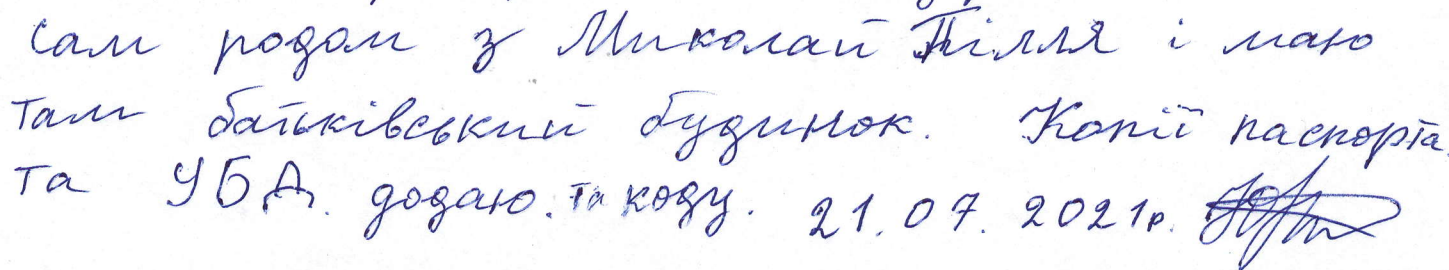 сам родом з Миколай Пілля і маю
там батьківський будинок. Копії паспорта
та УБД. додаю. та коду. 21.07.2021р.